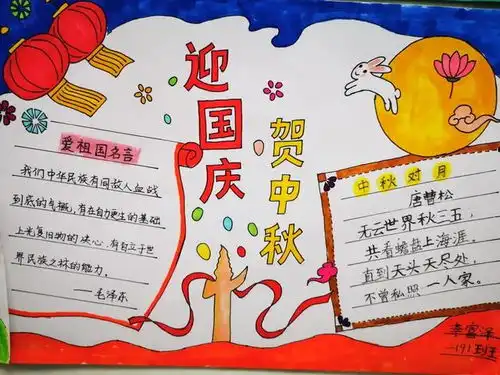 迎国庆
贺中秋
爱祖国名言
我们中华民族有同敌人血战
到底的气概,有在自力更生的基础
上光复旧物的决心,有自立于世
界民族之林的能力。
——毛泽东
中秋对月
唐曹松
无云世界秋三五,
共看蟾盘上海涯。
直到天头天尽处,
不曾私照一人家。
李富泽
191班